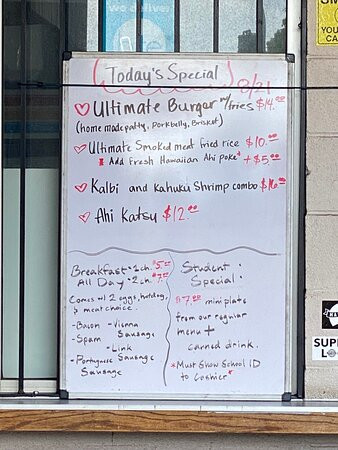 we deliver
Today's Special 9/21
Ultimate Burger w/fries $14.00
(home made patty, Porkbelly, Brisket)
Ultimate Smoked meat fried rice $10.00
Add Fresh Hawaiian Ahi poke* + $5.00
Kalbi and kahuku Shrimp combo $16.00
Ahi Katsu $12.00
Breakfast - 1 ch. $5.00
All Day - 2 ch. $7.00
Comes w/ 2 eggs, hotdog,
& meat choice.
- Bacon - Vienna
- Spam Sausage
- Link
- Portuguese Sausage
Sausage
Student
Special:
$7.00 mini plate
from our regular
menu +
canned drink.
*Must Show School ID
to Cashier*